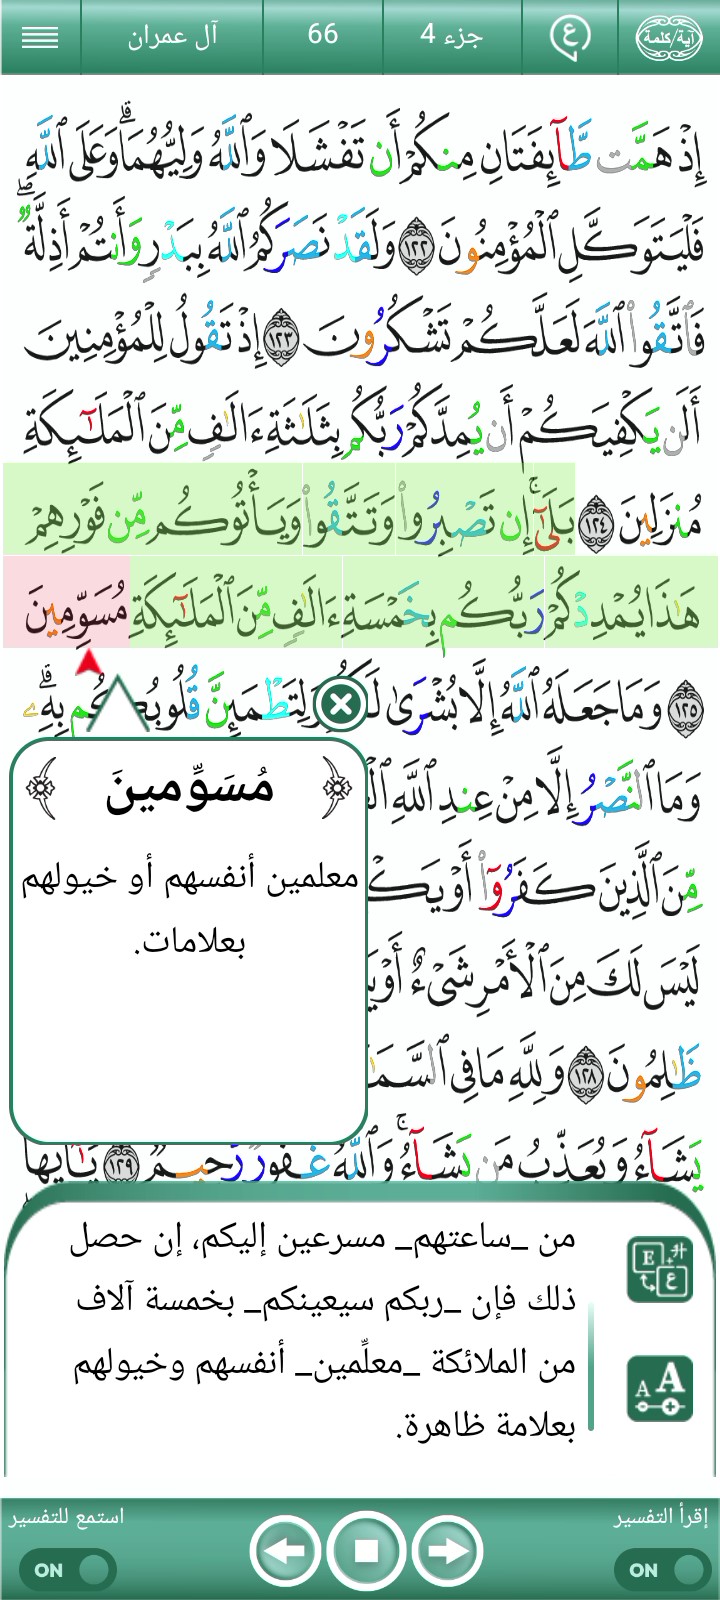 آية/كلمة ع جزء 4 66 آل عمران
إِذْ هَمَّت طَّآئِفَتَانِ مِنكُمْ أَن تَفْشَلَا وَٱللَّهُ وَلِيُّهُمَا ۗ وَعَلَى ٱللَّهِ
فَلْيَتَوَكَّلِ ٱلْمُؤْمِنُونَ ١٢٢ وَلَقَدْ نَصَرَكُمُ ٱللَّهُ بِبَدْرٍ وَأَنتُمْ أَذِلَّةٌ ۖ
فَٱتَّقُوا۟ ٱللَّهَ لَعَلَّكُمْ تَشْكُرُونَ ١٢٣ إِذْ تَقُولُ لِلْمُؤْمِنِينَ
أَلَن يَكْفِيَكُمْ أَن يُمِدَّكُمْ رَبُّكُم بِثَلَٰثَةِ ءَالَٰفٍ مِّنَ ٱلْمَلَٰٓئِكَةِ
مُنزَلِينَ ١٢٤ بَلَىٰٓ ۚ إِن تَصْبِرُوا۟ وَتَتَّقُوا۟ وَيَأْتُوكُم مِّن فَوْرِهِمْ
هَٰذَا يُمْدِدْكُمْ رَبُّكُم بِخَمْسَةِ ءَالَٰفٍ مِّنَ ٱلْمَلَٰٓئِكَةِ مُسَوِّمِينَ
١٢٥ وَمَا جَعَلَهُ ٱللَّهُ إِلَّا بُشْرَىٰ وَلِتَطْمَئِنَّ قُلُوبُكُم بِهِۦ ۗ
وَمَا ٱلنَّصْرُ إِلَّا مِنْ عِندِ ٱللَّهِ
مِّنَ ٱلَّذِينَ كَفَرُوٓا۟ أَوْ
لَيْسَ لَكَ مِنَ ٱلْأَمْرِ شَىْءٌ أَوْ
ظَٰلِمُونَ ١٢٨ وَلِلَّهِ مَا فِى
يَشَآءُ وَيُعَذِّبُ مَن يَشَآءُ ۚ وَٱللَّهُ غَفُورٌ رَّحِيمٌ ١٢٩ يَٰٓأَيُّهَا
﴿ مُسَوِّمينَ ﴾
معلمين أنفسهم أو خيولهم
بعلامات.
من _ساعتهم_ مسرعين إليكم، إن حصل
ذلك فإن _ربكم سيعينكم_ بخمسة آلاف
من الملائكة _معلِّمين_ أنفسهم وخيولهم
بعلامة ظاهرة.
إقرأ التفسير استمع للتفسير
ON ON